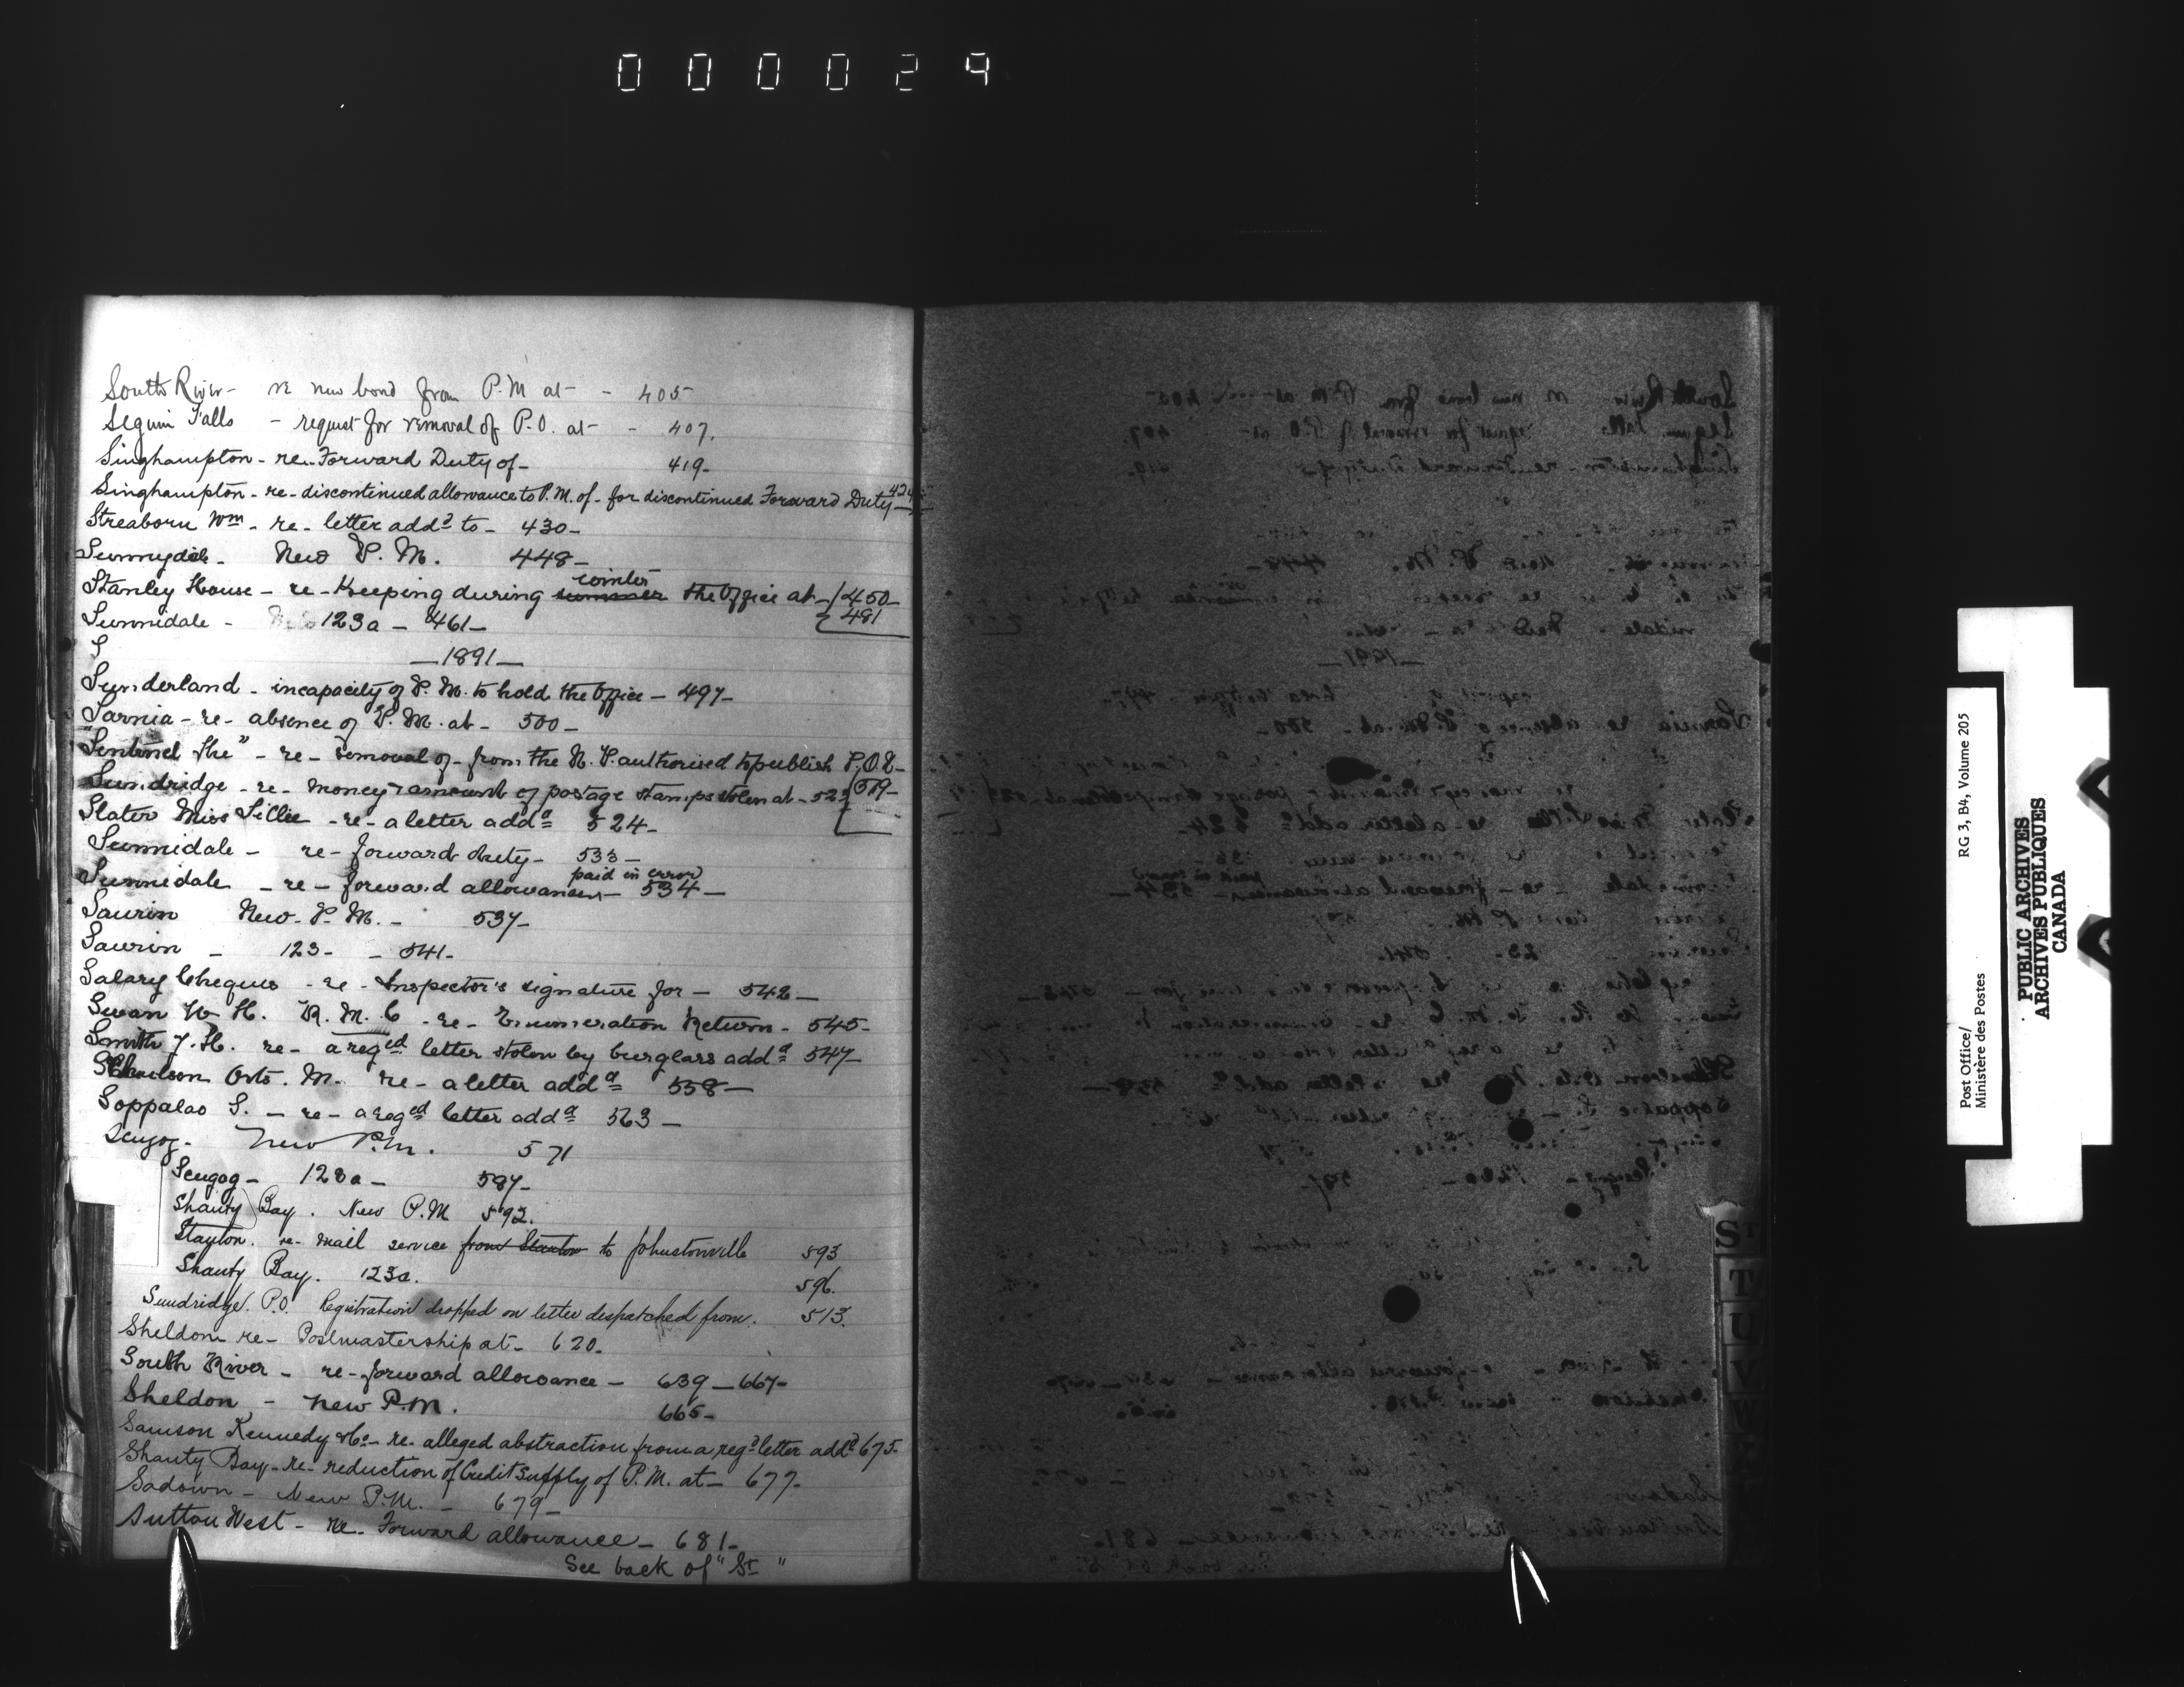 000029
South River - re new bond from P.M at - - 405
Seguin Falls - request for removal of P.O. at - - 407.
Singhampton - re - Forward Duty of - 419 -
Singhampton - re - discontinued allowance to P.M. of - for discontinued Forward Duty - 424
Streaborn Wm - re - letter addd to - 430 -
Sunnydale - New P. M. 448 -
winter
Stanley House - re - Keeping during summer the Office at - 450 -
Sunnidale - 123a - 461 - 481
S
- 1891 -
Sunderland - incapacity of P. M. to hold the Office - 497 -
Sarnia - re - absence of P. M. at - 500 -
"Sentinel The" - re - removal of - from the N. P. authorised to publish P.O.
Sundridge - re - money & amount of postage stamps stolen at - 522 519 -
Slater Miss Tillie - re - a letter addd 524 -
Sunnidale - re - forward duty - 533 -
paid in error
Sunnidale - re - forward allowances - 534 -
Saurin New - P. M. - 537 -
Saurin - 123 - - 541 -
Salary Cheques - re - Inspector's signature for - 542 -
Swan W H. R. M. C - re - Enumeration Return - 545 -
Smith J. H. re - a reged letter stolen by burglars addd 547
M. re - a letter addd 558 -
Soppalas S. - re - a reged letter addd 563 -
Scugog - New P.M. 571
Scugog - 123a - 587 -
Shanty Bay. New P.M 592.
Stayton. re - mail service from Stanton to Johnstonville 593
Shanty Bay. 123a. 596.
Sundridge P.O. Registration dropped on letter despatched from. 513.
Sheldon re - Postmastership at - 620 -
South River - re - forward allowance - 639 - 667 -
Sheldon - New P.M. 665 -
Samson Kennedy & Co - re - alleged abstraction from a regd letter addd 675 -
Shanty Bay - re - reduction of Credit Supply of P.M. at - 677 -
Sadowa - New P.M. - 679 -
Sutton West - re - Forward allowance - 681 -
See back of "St"
St
T
U
V
W
Post Office/
Ministère des Postes
RG 3, B4, Volume 205
PUBLIC ARCHIVES
ARCHIVES PUBLIQUES
CANADA